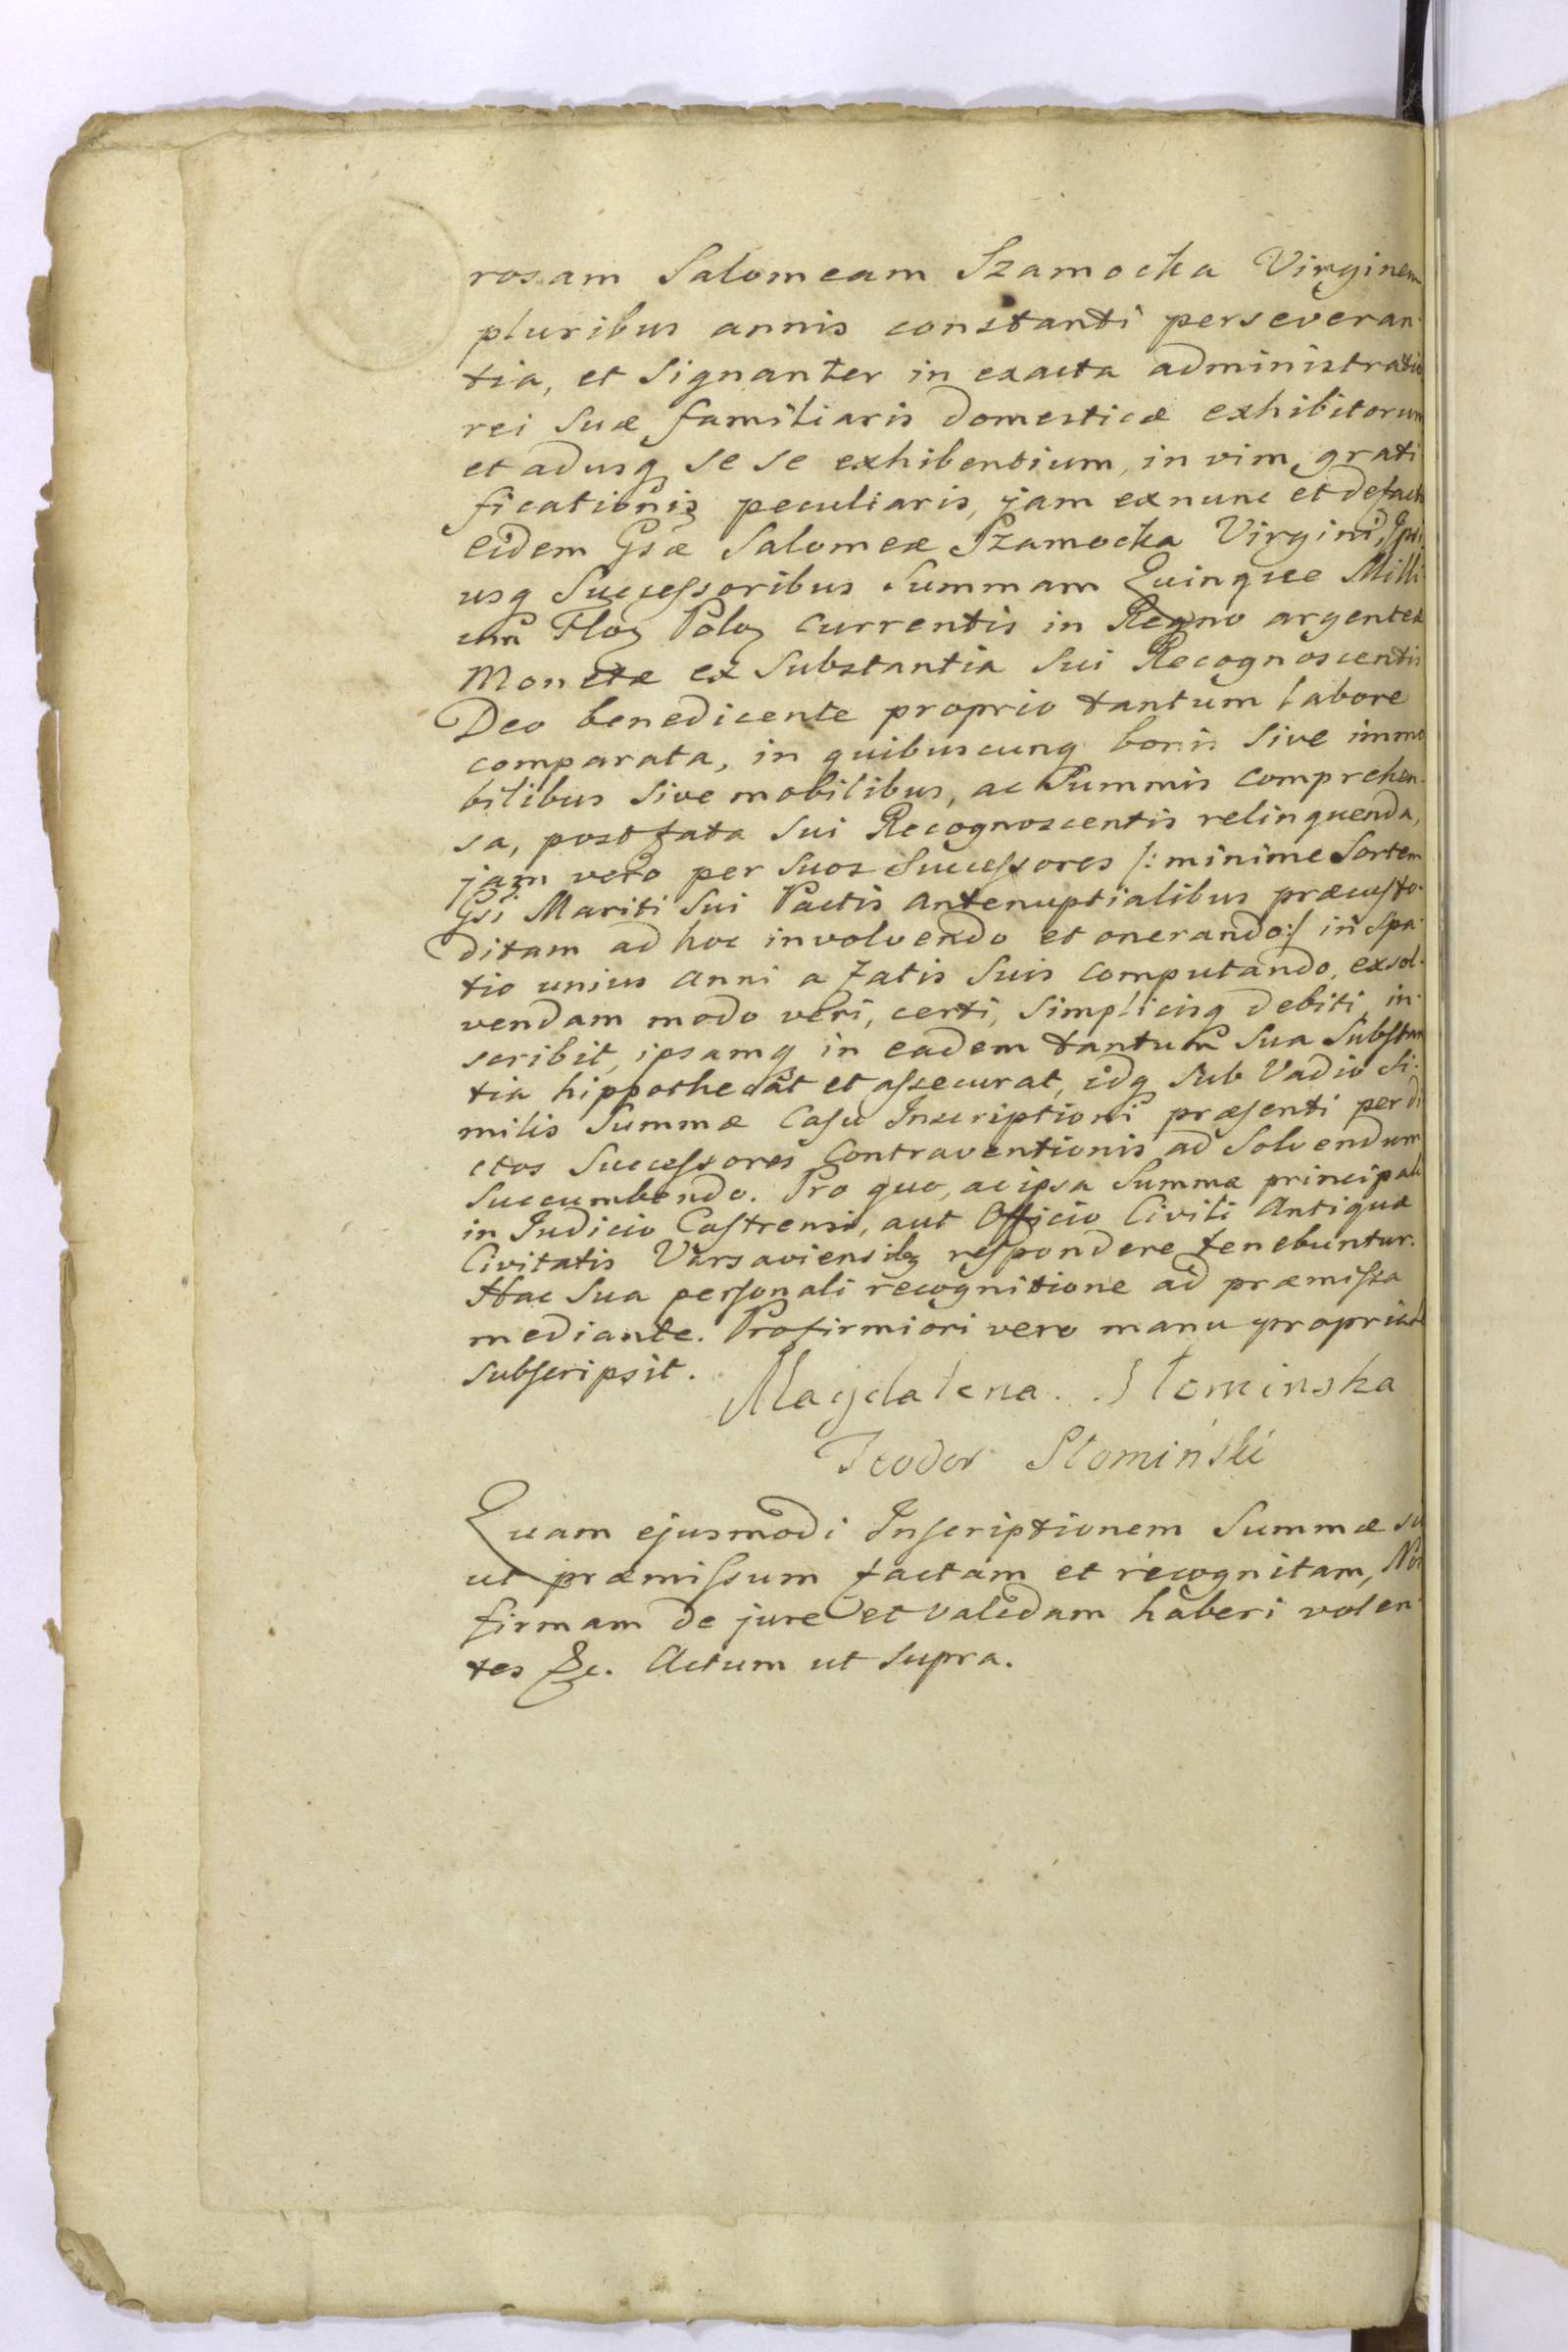 rosam Salomeam Szamocka Virginem
pluribus annis constanti perseveran-
tia, et signanter in exacta administratio
rei suæ familiaris domesticæ exhibitorum
et adusq se se exhibentium, in vim grati
ficationis peculiaris, jam exnunc et defacto
eidem Gsæ Salomeæ Szamocka Virgini, Ipsi
usq Successoribus Summam Quinque Milli
um Floz Poloz currentis in Regno argenteæ
Monetæ ex Substantia sui Recognoscentis
Deo benedicente proprio tantum labore
comparata, in quibuscunq bonis sive immo
bilibus sive mobilibus, ac Summis comprehen-
sa, post fata sui Recognoscentis relinquenda,
jam vero per suos Successores /: minime Sortem
Gsi Mariti sui Pactis antenuptialibus præcusto-
ditam ad hoc involvendo et onerando :/ in spa-
tio unius anni a fatis suis computando, exsol-
vendam modo veri, certi, simplicisq debiti in-
scribit, ipsamq in eadem tantum sua Substan
tia hippothecat et assecurat, idq sub Vadio si-
milis Summæ Casu Inscriptioni præsenti per di
ctos Successores Contraventionis ad solvendum
succumbendo. Pro quo, ac ipsa Summa principali
in Judicio Castrensi, aut Officio Civili Antiquæ
Civitatis Varsaviensis respondere tenebuntur.
Hac sua personali recognitione ad præmissa
mediante. Pro firmiori vero manu propria
subscripsit.
Magdalena Słominska
Teodor Słomiński
Quam ejusmodi Inscriptionem Summæ
ut præmissum factam et recognitam, Nos
firmam de jure et validam haberi volen-
tes &c. Actum ut supra.